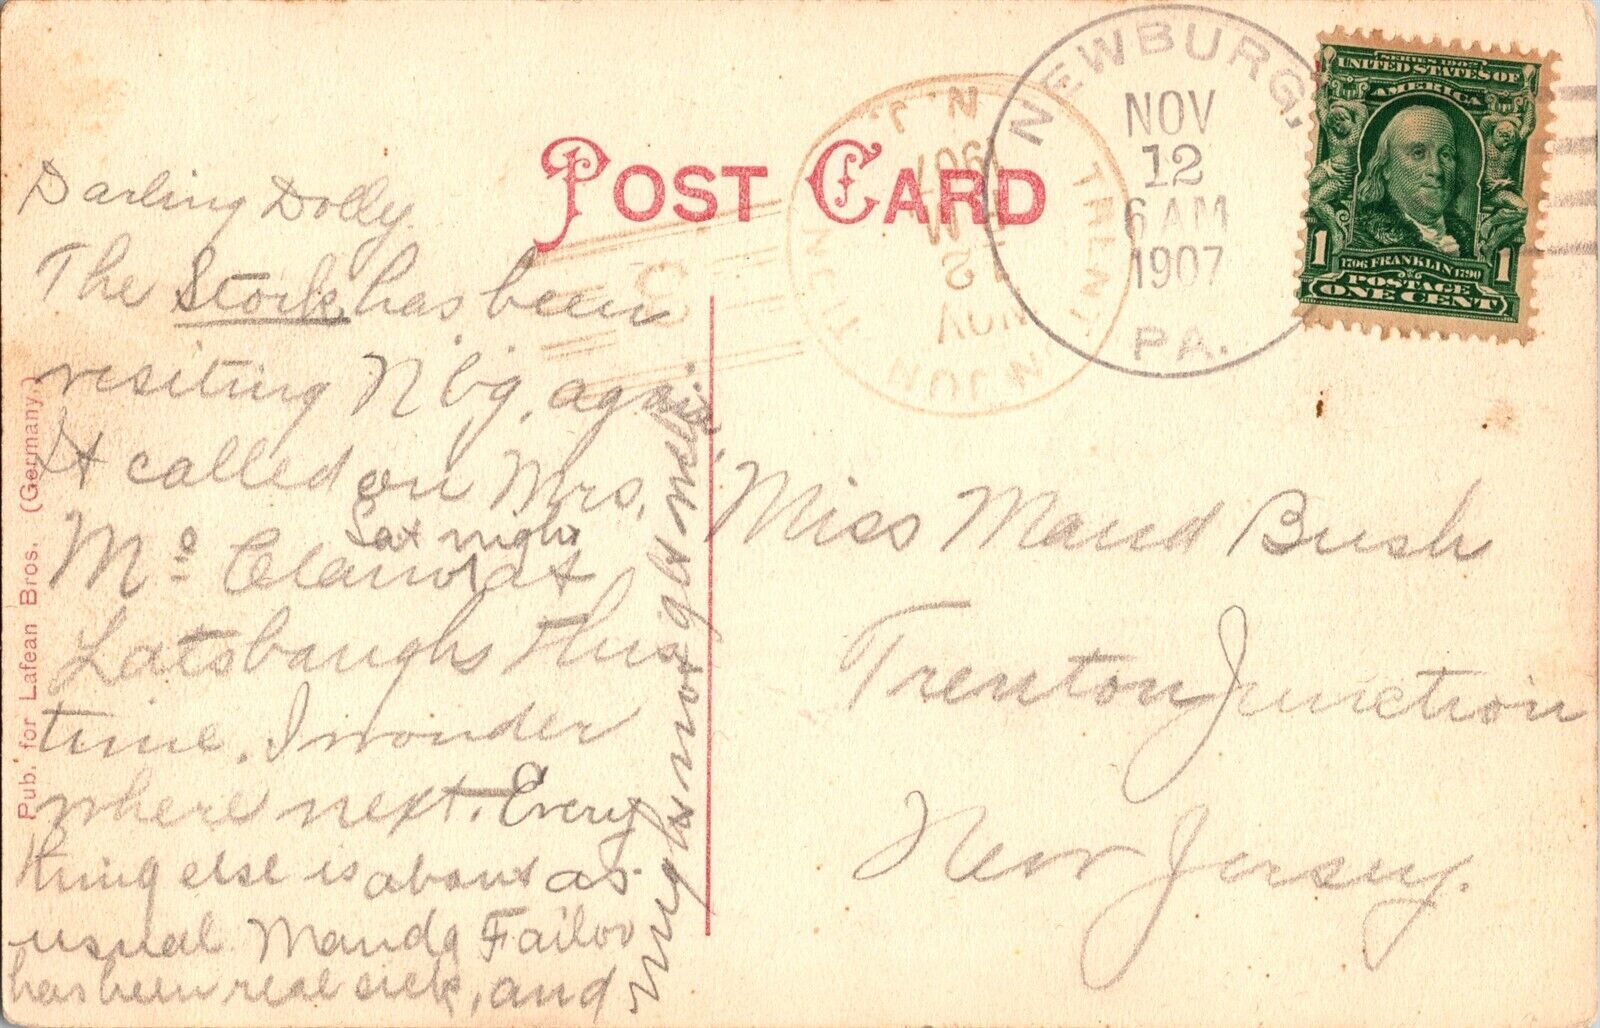 POST CARD
NEWBURG,
NOV
12
6 AM
1907
PA.
TRENTON JUNCTION
N. J.
NOV
12
1907
3
SERIES 1902
UNITED STATES OF
AMERICA
1 1
1706 FRANKLIN 1790
POSTAGE
ONE CENT
Pub. for Lafean Bros. (Germany.)
Darling Dolly.
The Stork has been
visiting N'b'g. again
It called on Mrs.
Sat night
Mc at
Latsbaughs this
time. I wonder
where next. Every
thing else is about as
usual. Manda Failor
has been real sick, and
might not
Miss Maud Bush
Trenton Junction
New Jersey.